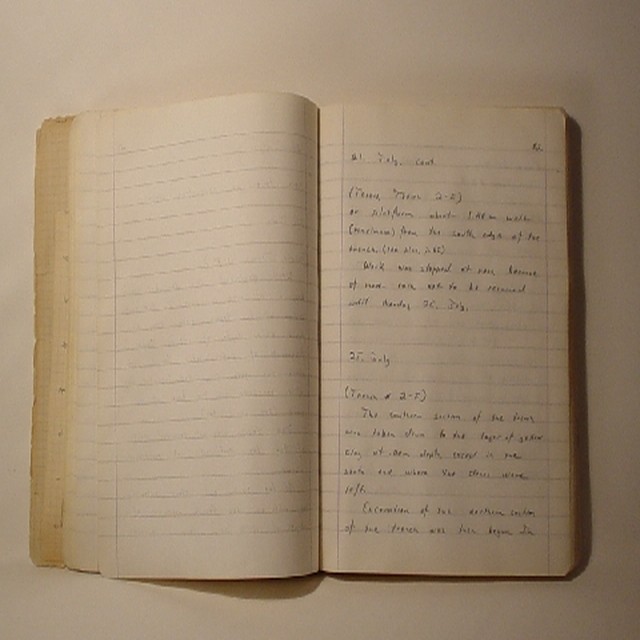 21 July. cont.
(Trench 2-E)
or platform about 1.40 m wide
(maximum) from the south edge of the
trench. (see plan
Work was stopped at noon because
of and not to be resumed
until Monday 25. July.
25. July
(Trench 2-E)
The southern section of the trench
was taken down to the layer of
clay at depth except in the
south end where the stones were
left.
Excavation of the northern section
of the trench was then begun. In